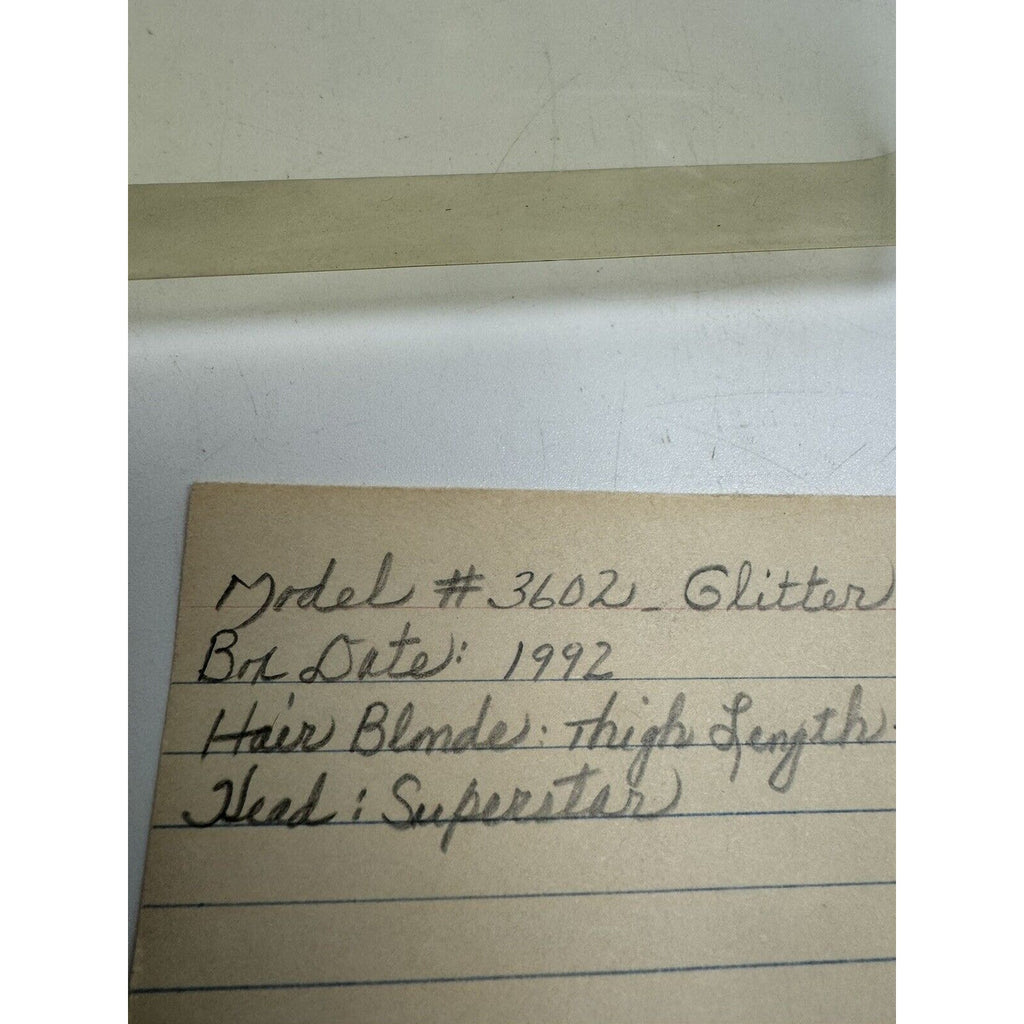 Model # 3602 - Glitter
Box Date: 1992
Hair Blonde: Thigh Length
Head: Superstar